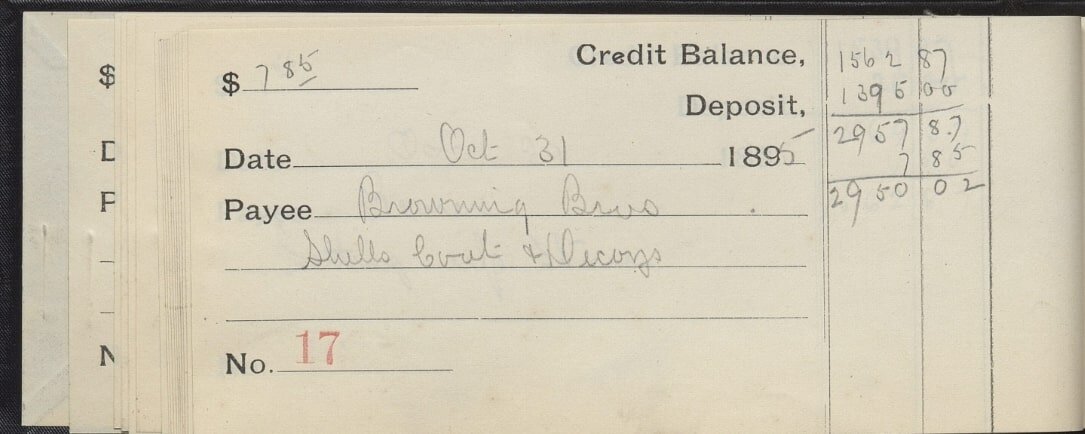 $ 7 85
Credit Balance, 1562 87
Deposit, 1395 00
2957 87
Date Oct 31 1895
7 85
2950 02
Payee Browning Bros
Shells Coat & Decoys
No. 17
$
D
P
N